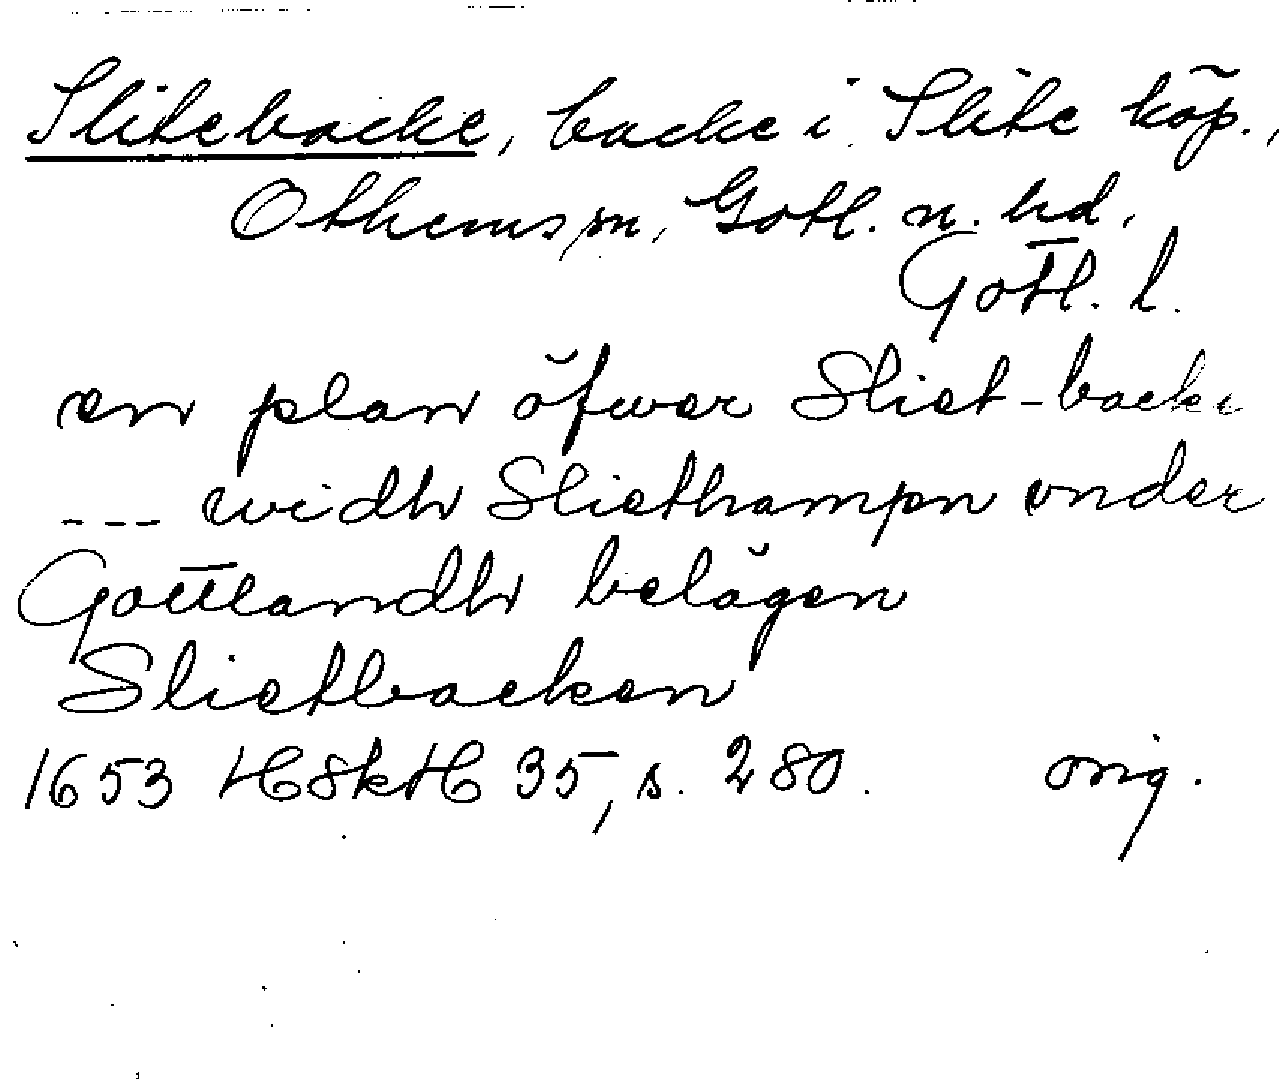 Slitebacke, backe i Slite köp.,
Othems sn, Gotl. n. hd,
Gotl. l.
en plan öfwer Sliet-backe
--- widh Sliethampn onder
Gottlandh belägen
Slietbacken
1653 HSkH 35, s. 280. orig.